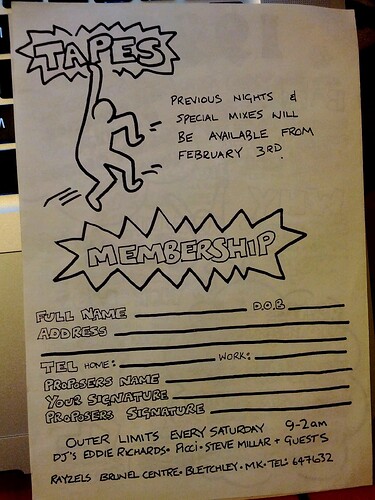 TAPES
PREVIOUS NIGHTS &
SPECIAL MIXES WILL
BE AVAILABLE FROM
FEBRUARY 3RD.
MEMBERSHIP
FULL NAME D.O.B
ADDRESS
TEL HOME: WORK:
PROPOSERS NAME
YOUR SIGNATURE
PROPOSERS SIGNATURE
OUTER LIMITS EVERY SATURDAY 9-2am
DJ'S EDDIE RICHARDS • PICCI • STEVE MILLAR + GUESTS
RAYZELS BRUNEL CENTRE • BLETCHLEY • MK • TEL: 647632